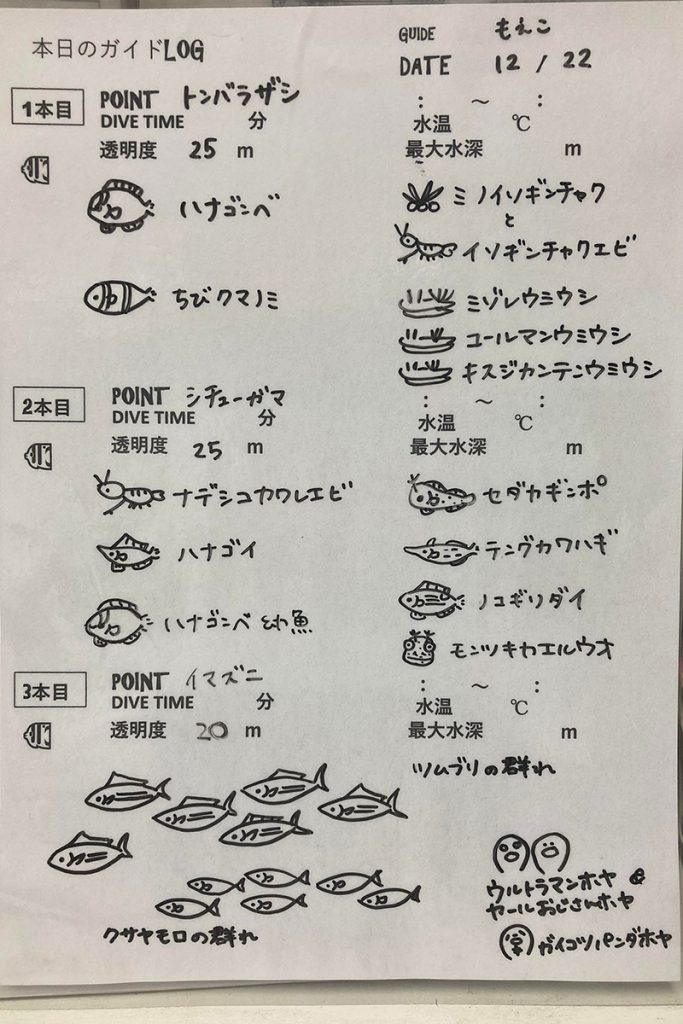 本日のガイドLOG
GUIDE もえこ
DATE 12 / 22
1本目 POINT トンバラザシ : ～ :
DIVE TIME 分 水温 ℃
透明度 25 m 最大水深 m
ハナゴンベ
ちびクマノミ
ミノイソギンチャク
と
イソギンチャクエビ
ミゾレウミウシ
コールマンウミウシ
キスジカンテンウミウシ
2本目 POINT シチューガマ : ～ :
DIVE TIME 分 水温 ℃
透明度 25 m 最大水深 m
ナデシコカワレエビ
ハナゴイ
ハナゴンベ 幼魚
セダカギンポ
テングカワハギ
ノコギリダイ
モンツキカエルウオ
3本目 POINT イマズニ : ～ :
DIVE TIME 分 水温 ℃
透明度 20 m 最大水深 m
ツムブリの群れ
クサヤモロの群れ
ウルトラマンホヤ
ヤールおじさんホヤ
ガイコツパンダホヤ